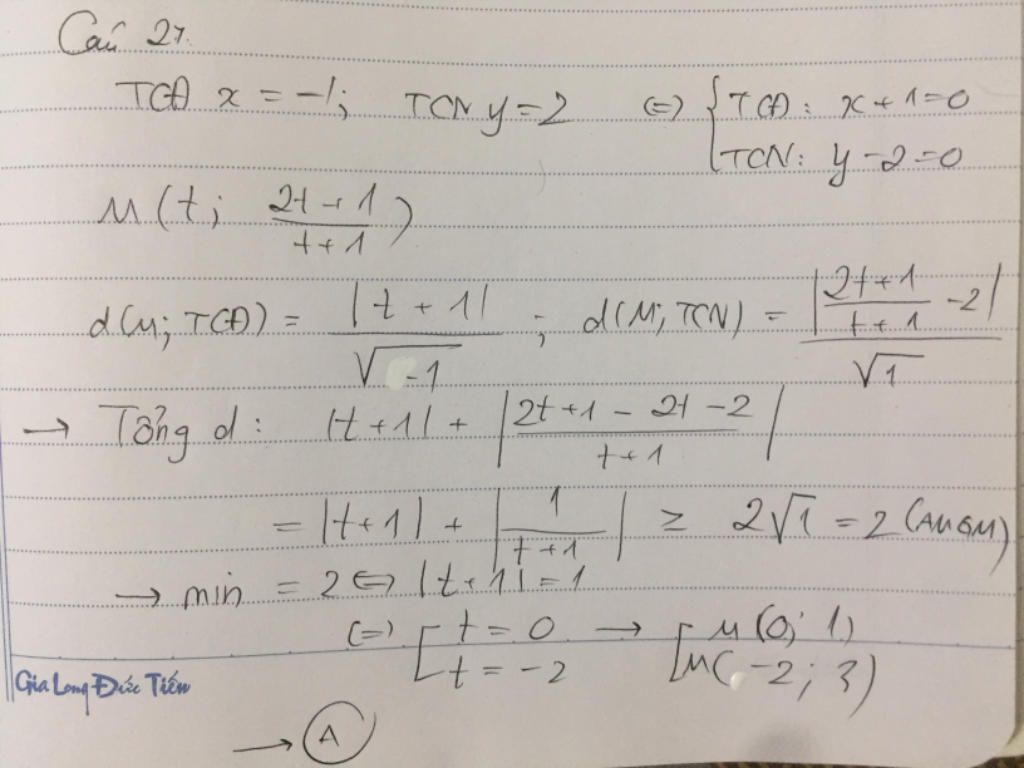 Câu 27.
TCĐ x = -1; TCN y = 2 <=> { TCĐ: x + 1 = 0
TCN: y - 2 = 0
M(t; \frac{2t+1}{t+1})
d(M; TCĐ) = \frac{|t+1|}{\sqrt{-1}} ; d(M; TCN) = \frac{|\frac{2t+1}{t+1} - 2|}{\sqrt{1}}
→ Tổng d: |t+1| + |\frac{2t+1-2t-2}{t+1}|
= |t+1| + |\frac{1}{t+1}| ≥ 2\sqrt{1} = 2 (AM GM)
→ min = 2 <=> |t+1| = 1
<=> [ t = 0 → [ M(0; 1)
t = -2 M(-2; 3)
Gia Long Đức Tiến
→ A